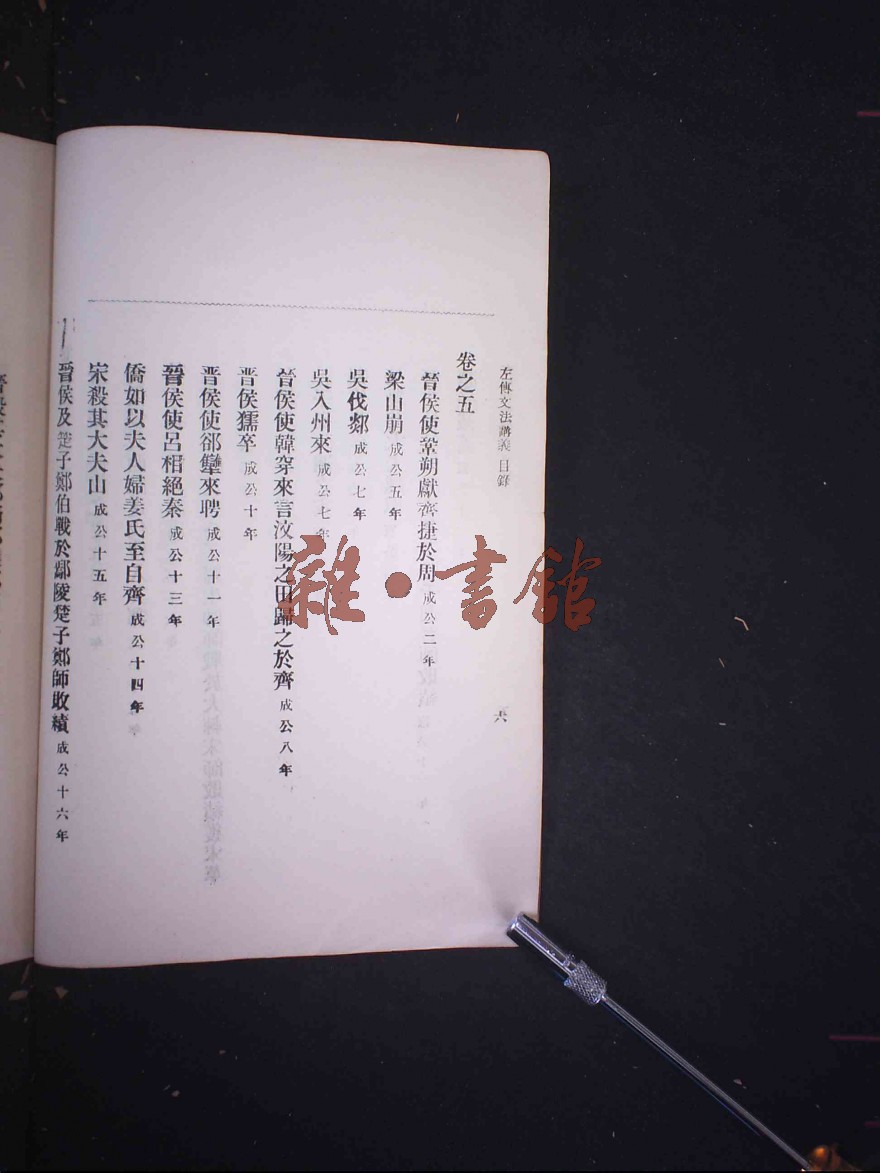 左傳文法講義 目錄
六
卷之五
晉侯使鞏朔獻齊捷於周 成公二年
梁山崩 成公五年
吳伐郯 成公七年
吳入州來 成公七年
晉侯使韓穿來言汶陽之田歸之於齊 成公八年
晉侯獳卒 成公十年
晋侯使郤犨來聘 成公十一年
晉侯使呂相絕秦 成公十三年
僑如以夫人婦姜氏至自齊 成公十四年
宋殺其大夫山 成公十五年
晉侯及楚子鄭伯戰於鄢陵楚子鄭師敗績 成公十六年
雜·書館